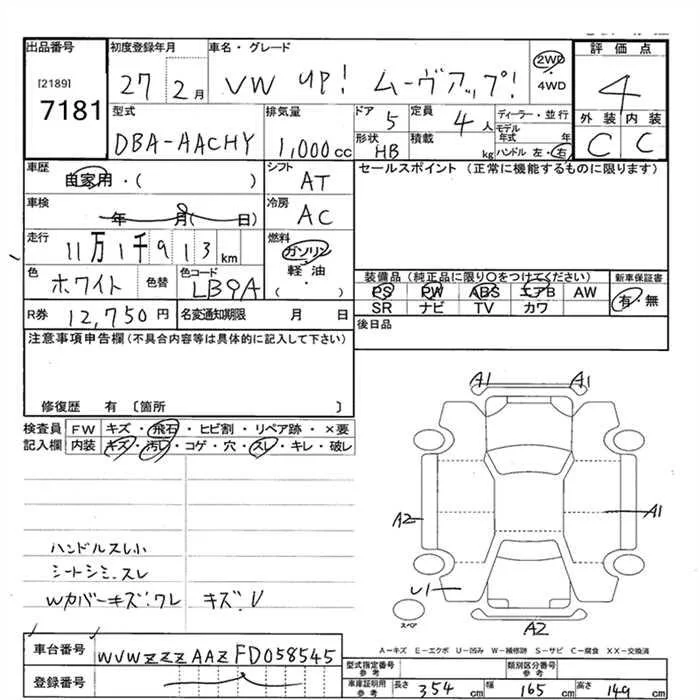 出品番号 初度登録年月 車名・グレード 評価点
[2189]
7181
27 2月 VW UP! ムーヴアップ! 2WD 4WD 4
型式 排気量 ドア 5 定員 4人 ディーラー・並行
モデル年式 年
外装 内装
DBA-AACHY 1,000cc 形状 HB 積載 kg ハンドル 左・右 C C
車歴 自家用・( ) シフト AT セールスポイント (正常に機能するものに限ります)
車検 年 月( 日) 冷房 AC
走行 11万1千913km 燃料 ガソリン 軽油 ( )
色 ホワイト 色替 色コード LB9A
装備品(純正品に限り○をつけてください) 新車保証書
PS PW ABS エアB AW 有・無
SR ナビ TV カワ
R券 12,750円 名変通知期限 月 日
後日品
注意事項申告欄(不具合内容等は具体的に記入して下さい)
修復歴 有 〔箇所 〕
検査員 FW キズ・飛石・ヒビ割・リペア跡・×要
記入欄 内装 キズ・汚レ・コゲ・穴・スレ・キレ・破レ
A1 A1
A2 A1
ハンドルスレ小
シートシミ.スレ
Wカバーキズ.ワレ キズ.V
U1
スペア
A2
A-キズ E-エクボ U-凹み W-補修跡 S-サビ C-腐食 XX-交換済
車台番号 WVWZZZAAZFD058545
登録番号
型式指定番号 参考 類別区分番号 参考
車庫証明用 参考 長さ 354cm 幅 165cm 高さ 149cm